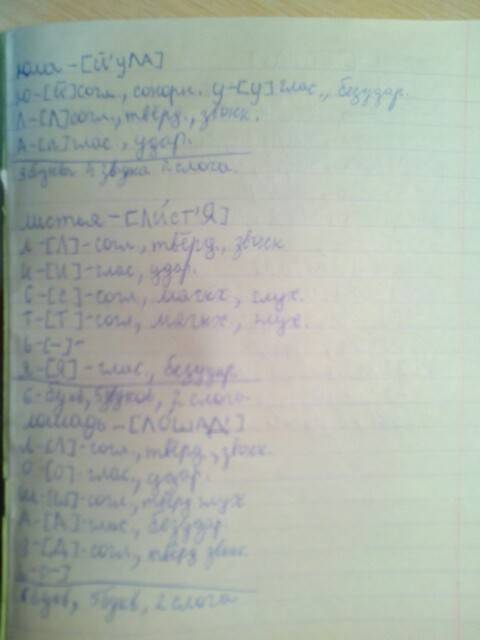 юла - [й'уЛА]
Ю - [й] согл., сонорн. у - [у] глас., безудар.
Л - [Л] согл., твёрд., звонк.
А - [А] глас., удар.
3 буквы 4 звука 2 слога.
листья - [ЛИ́СТ'Я]
Л - [Л] - согл., твёрд., звонк
И - [И] - глас, удар.
С - [С] - согл, мягкх, глух.
Т - [Т] - согл, мягкх, глух.
Ь - [-] -
Я - [Я] - глас., безудар.
6 - букв, 5 звуков, 2 слога
лошадь - [ЛО́ШАД']
Л - [Л] - согл., твёрд., звонк.
О - [О] - глас., удар.
Ш - [Ш] - согл, твёрд глух
А - [А] - глас, безудар.
Д - [Д] - согл, твёрд звонк
Ь - [-]
6 букв, 5 букв, 2 слога